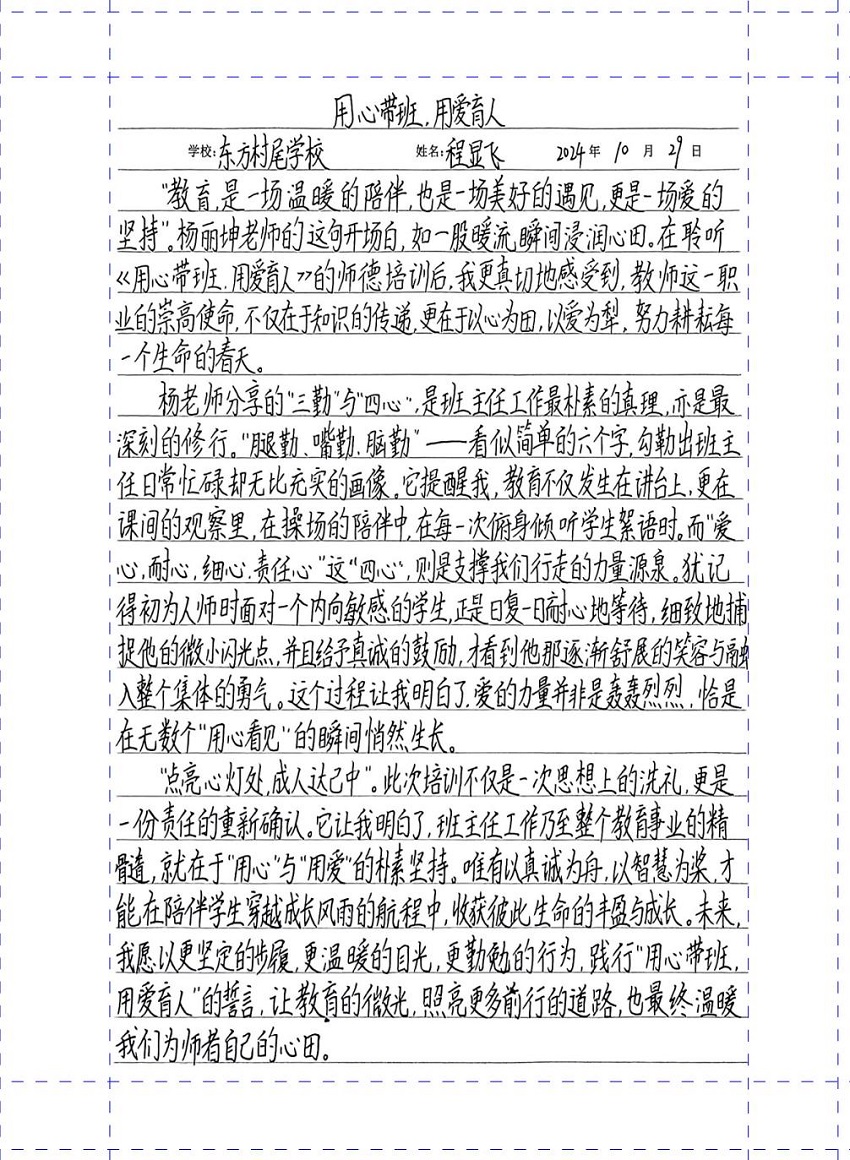 用心带班,用爱育人
学校:东方村尾学校 姓名:程显飞 2024年 10月 29日
"教育,是一场温暖的陪伴,也是一场美好的遇见,更是一场爱的
坚持"。杨丽坤老师的这句开场白,如一股暖流,瞬间浸润心田。在聆听
《用心带班,用爱育人》的师德培训后,我更真切地感受到,教师这一职
业的崇高使命,不仅在于知识的传递,更在于以心为田,以爱为犁,努力耕耘每
一个生命的春天。
杨老师分享的"三勤"与"四心",是班主任工作最朴素的真理,亦是最
深刻的修行。"腿勤、嘴勤、脑勤"——看似简单的六个字,勾勒出班主
任日常忙碌却无比充实的画像。它提醒我,教育不仅发生在讲台上,更在
课间的观察里,在操场的陪伴中,在每一次俯身倾听学生絮语时。而"爱
心,耐心,细心,责任心"这"四心",则是支撑我们行走的力量源泉。犹记
得初为人师时面对一个内向敏感的学生,正是日复一日耐心地等待,细致地捕
捉他的微小闪光点,并且给予真诚的鼓励,才看到他那逐渐舒展的笑容与融
入整个集体的勇气。这个过程让我明白了,爱的力量并非是轰轰烈烈,恰是
在无数个"用心看见"的瞬间悄然生长。
"点亮心灯处,成人达己中"。此次培训不仅是一次思想上的洗礼,更是
一份责任的重新确认。它让我明白了,班主任工作乃至整个教育事业的精
髓,就在于"用心"与"用爱"的朴素坚持。唯有以真诚为舟,以智慧为桨,才
能在陪伴学生穿越成长风雨的航程中,收获彼此生命的丰盈与成长。未来,
我愿以更坚定的步履,更温暖的目光,更勤勉的行为,践行"用心带班,
用爱育人"的誓言,让教育的微光,照亮更多前行的道路,也最终温暖
我们为师者自己的心田。